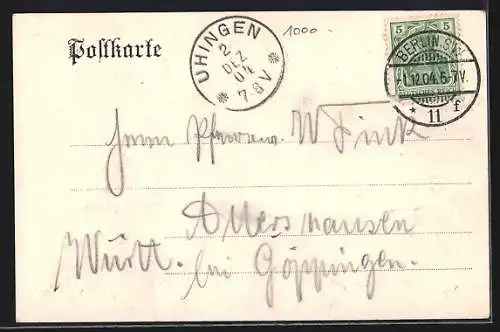 Postkarte
UHINGEN
2
DEZ
04
7-8 V
1000.
5 5
BERLIN S.W.
1.12.04.6-7V.
* 11 f
DEUTSCHES REICH
Herrn Pfarrer W Finck
Württ. bei Göppingen.